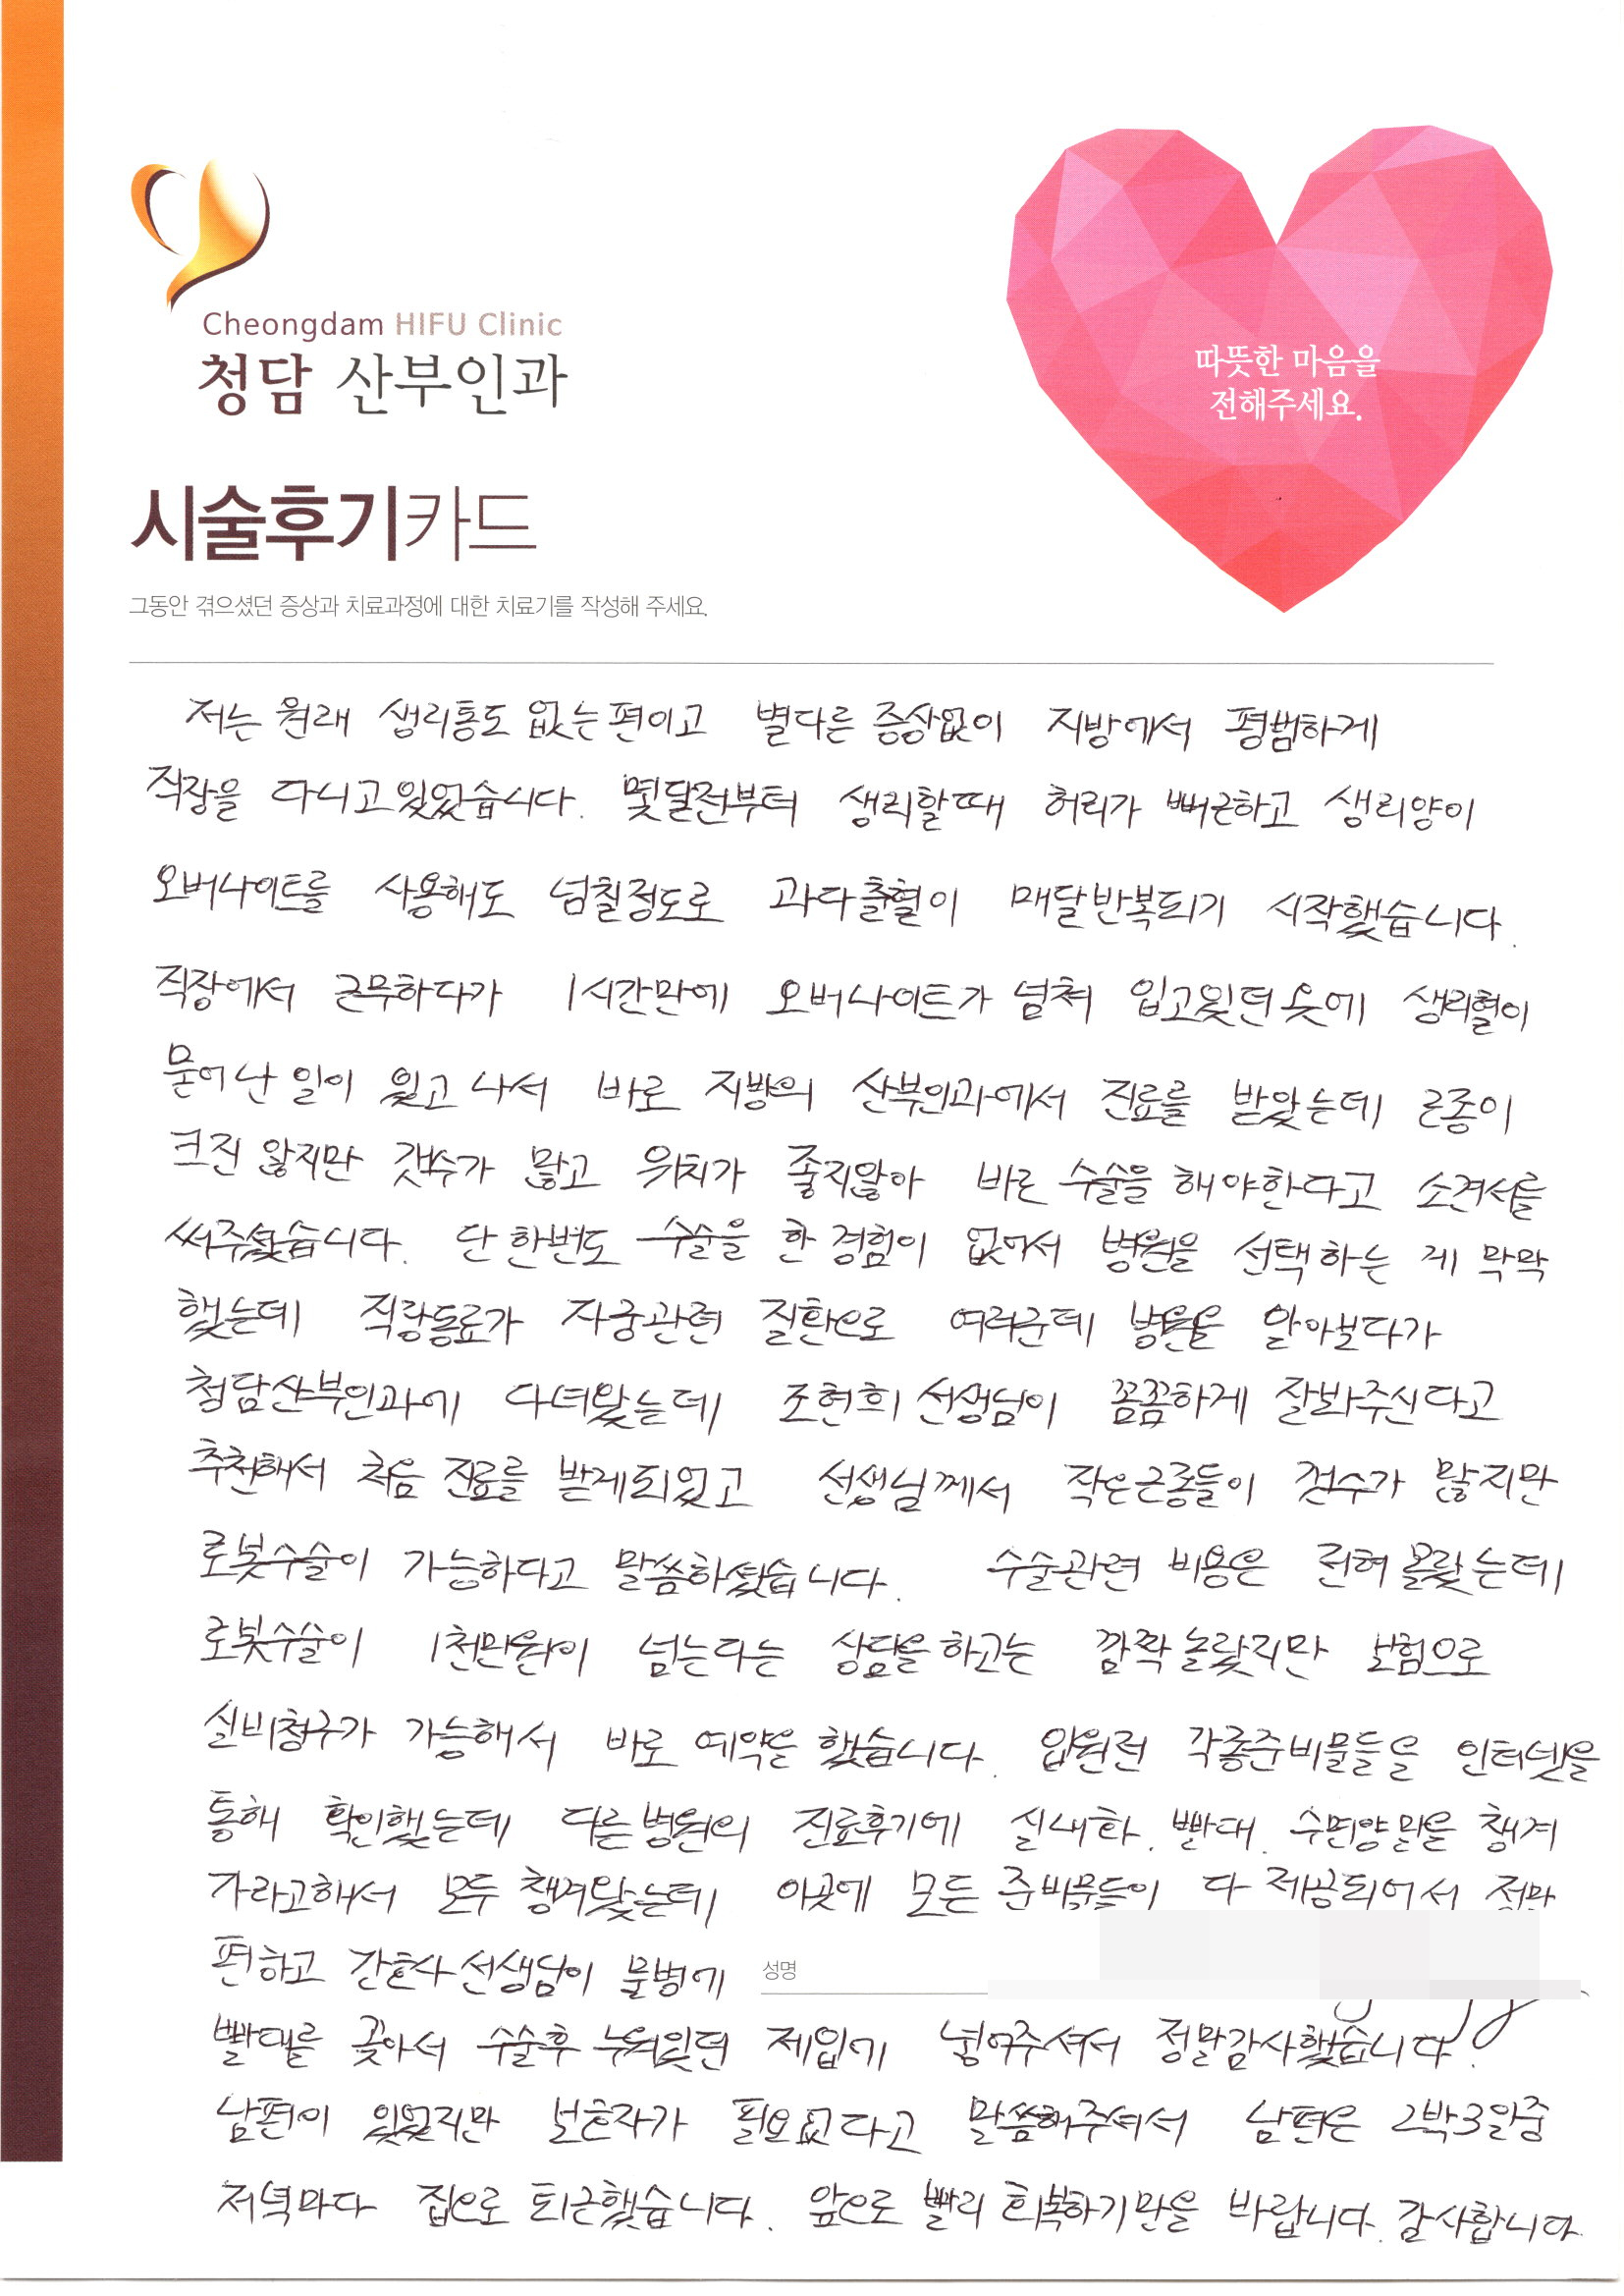 Cheongdam HIFU Clinic
청담 산부인과
따뜻한 마음을
전해주세요.
시술후기카드
그동안 겪으셨던 증상과 치료과정에 대한 치료기를 작성해 주세요.
저는 원래 생리통도 없는편이고 별다른 증상없이 지방에서 평범하게
직장을 다니고있었습니다. 몇달전부터 생리할때 허리가 뻐근하고 생리양이
오버나이트를 사용해도 넘칠정도로 과다출혈이 매달반복되기 시작했습니다.
직장에서 근무하다가 1시간만에 오버나이트가 넘쳐 입고있던옷에 생리혈이
묻어난 일이 있고 나서 바로 지방의 산부인과에서 진료를 받았는데 근종이
크진 않지만 갯수가 많고 위치가 좋지않아 바로 수술을 해야한다고 소견서를
써주셨습니다. 단 한번도 수술을 한 경험이 없어서 병원을 선택하는 게 막막
했는데 직장동료가 자궁관련 질환으로 여러군데 병원을 알아보다가
청담산부인과에 다녀왔는데 조현희 선생님이 꼼꼼하게 잘봐주신다고
추천해서 처음 진료를 받게되었고 선생님께서 작은근종들이 갯수가 많지만
로봇수술이 가능하다고 말씀하셨습니다. 수술관련 비용은 전혀 몰랐는데
로봇수술이 1천만원이 넘는다는 상담을 하고는 깜짝 놀랐지만 보험으로
실비청구가 가능해서 바로 예약을 했습니다. 입원전 각종준비물들을 인터넷을
통해 확인했는데 다른병원의 진료후기에 실내화, 빨대, 수면양말을 챙겨
가라고해서 모두 챙겨왔는데 이곳에 모든 준비물들이 다 제공되어서 정말
편하고 간호사선생님이 물병에
성명
빨대를 꽂아서 수술후 누워있던 제입에 넣어주셔서 정말감사했습니다.
남편이 있었지만 보호자가 필요없다고 말씀해주셔서 남편은 2박3일중
저녁마다 집으로 퇴근했습니다. 앞으로 빨리 회복하기만을 바랍니다. 감사합니다